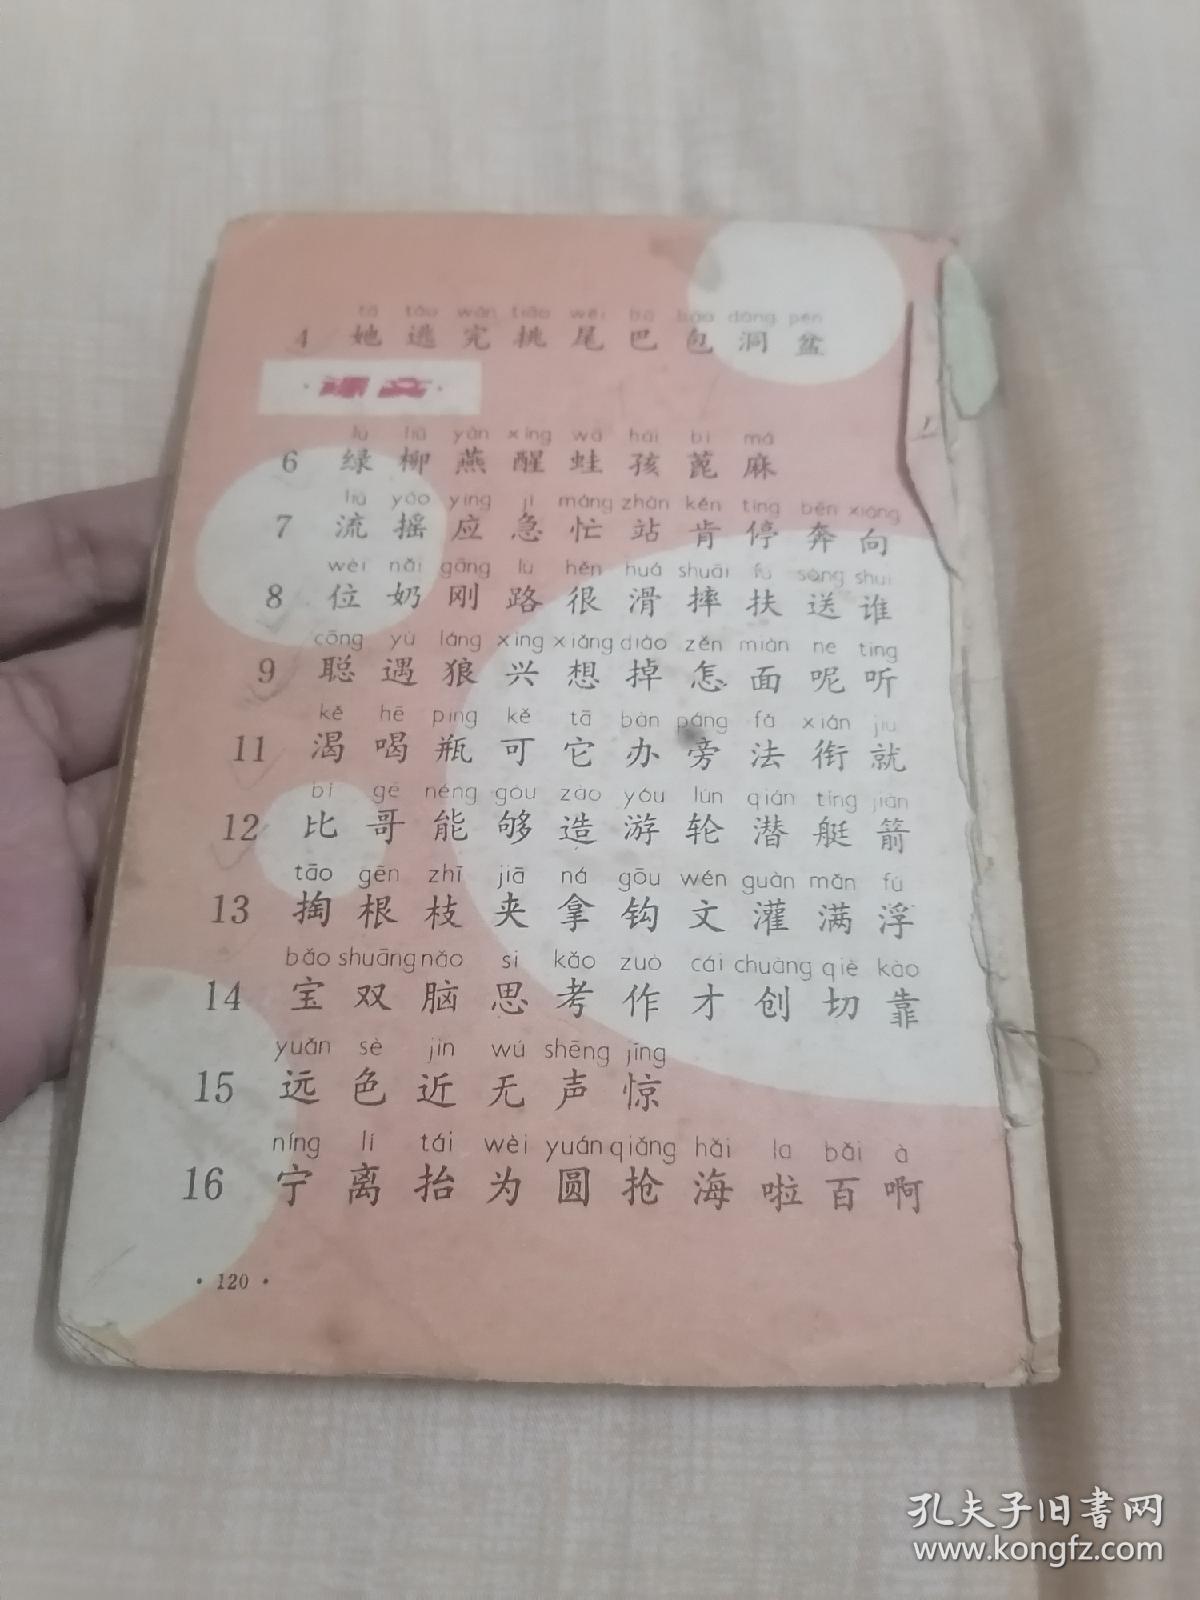 tā táo wán tiāo wěi bā bāo dòng pén
4 她 逃 完 挑 尾 巴 包 洞 盆
·课文·
lǜ liǔ yàn xǐng wā hái bì má
6 绿 柳 燕 醒 蛙 孩 蓖 麻
liú yáo yīng jí máng zhàn kěn tíng bēn xiàng
7 流 摇 应 急 忙 站 肯 停 奔 向
wèi nǎi gāng lù hěn huá shuāi fú sòng shuí
8 位 奶 刚 路 很 滑 摔 扶 送 谁
cōng yù láng xìng xiǎng diào zěn miàn ne tīng
9 聪 遇 狼 兴 想 掉 怎 面 呢 听
kě hē píng kě tā bàn páng fǎ xián jiù
11 渴 喝 瓶 可 它 办 旁 法 衔 就
bǐ gē néng gòu zào yóu lún qián tǐng jiàn
12 比 哥 能 够 造 游 轮 潜 艇 箭
tāo gēn zhī jiā ná gōu wén guàn mǎn fú
13 掏 根 枝 夹 拿 钩 文 灌 满 浮
bǎo shuāng nǎo sī kǎo zuò cái chuàng qiè kào
14 宝 双 脑 思 考 作 才 创 切 靠
yuǎn sè jìn wú shēng jīng
15 远 色 近 无 声 惊
níng lí tái wèi yuán qiǎng hǎi la bǎi à
16 宁 离 抬 为 圆 抢 海 啦 百 啊
·120·
孔夫子旧书网
www.kongfz.com